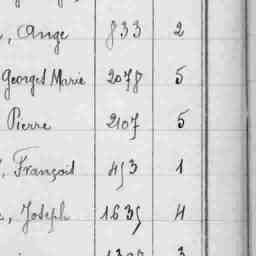 , Ange 833 2
Georget Marie 2078 5
Pierre 2107 5
, François 453 1
, Joseph 1635 4
3